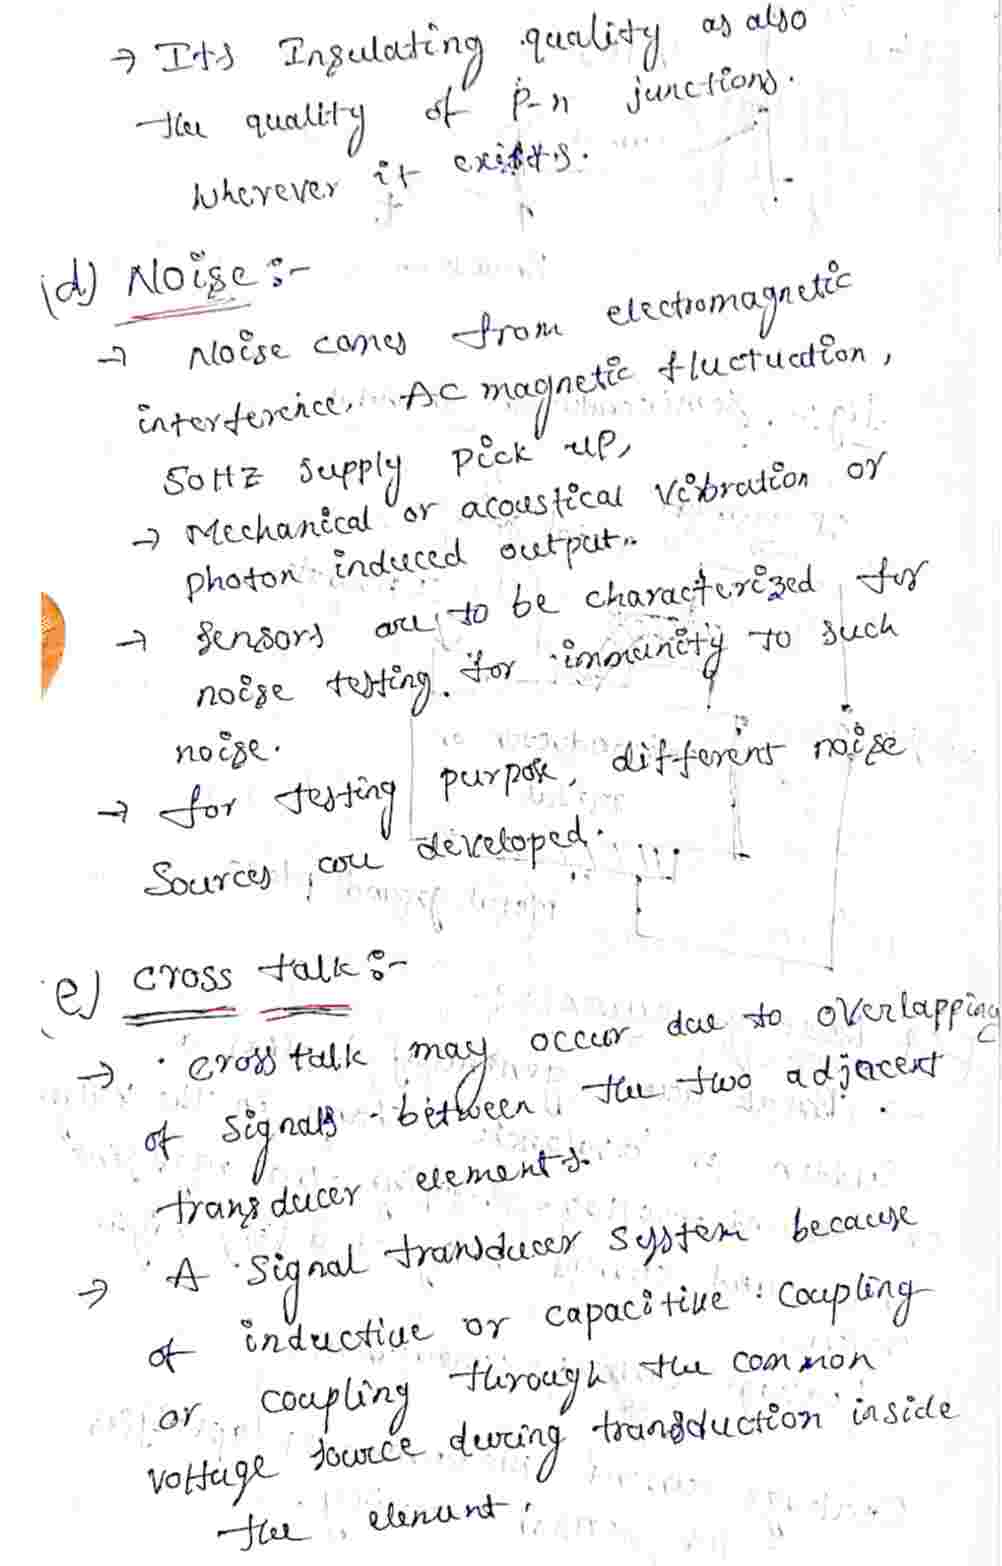 → Its Insulating quality as also
the quality of p-n junctions.
wherever it exists.
(d) Noise :-
→ Noise comes from electromagnetic
interference, AC magnetic fluctuation,
50HZ supply pick up,
→ Mechanical or acoustical vibration or
photon induced output.
→ Sensors are to be characterized for
noise testing. for immunity to such
noise.
→ for testing purpose, different noise
Sources are developed.
(e) cross talk :-
→ cross talk may occur due to overlapping
of signals between the two adjacent
transducer elements.
→ A Signal transducer system because
of inductive or capacitive coupling
or coupling through the common
voltage source during transduction inside
the element.